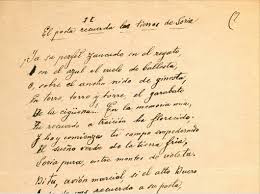 El poeta recuerda las tierras de Soria
¡Ya su perfil zancudo en el regato,
en el azul el vuelo de ballesta,
o, sobre el ancho nido de ginesta,
en torre, torre y torre, el garabato
de la cigüeña!.. En la memoria mia
tu recuerdo a traición ha florecido;
y hoy comienza tu campo empedernido
el sueño verde de la tierra fria,
Soria pura, entre montes de violeta.
Di tú, avión marcial, si el alto Duero
recuerda a su poeta